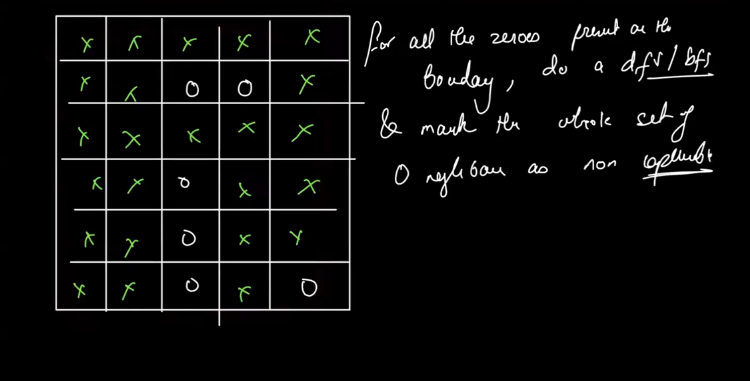 X X X X X
X X O O X
X X X X X
X X O X X
X X O X X
X X O X O
for all the zeroes present on the
bounday, do a dfs/bfs
& mark the whole set of
O neighbours as non